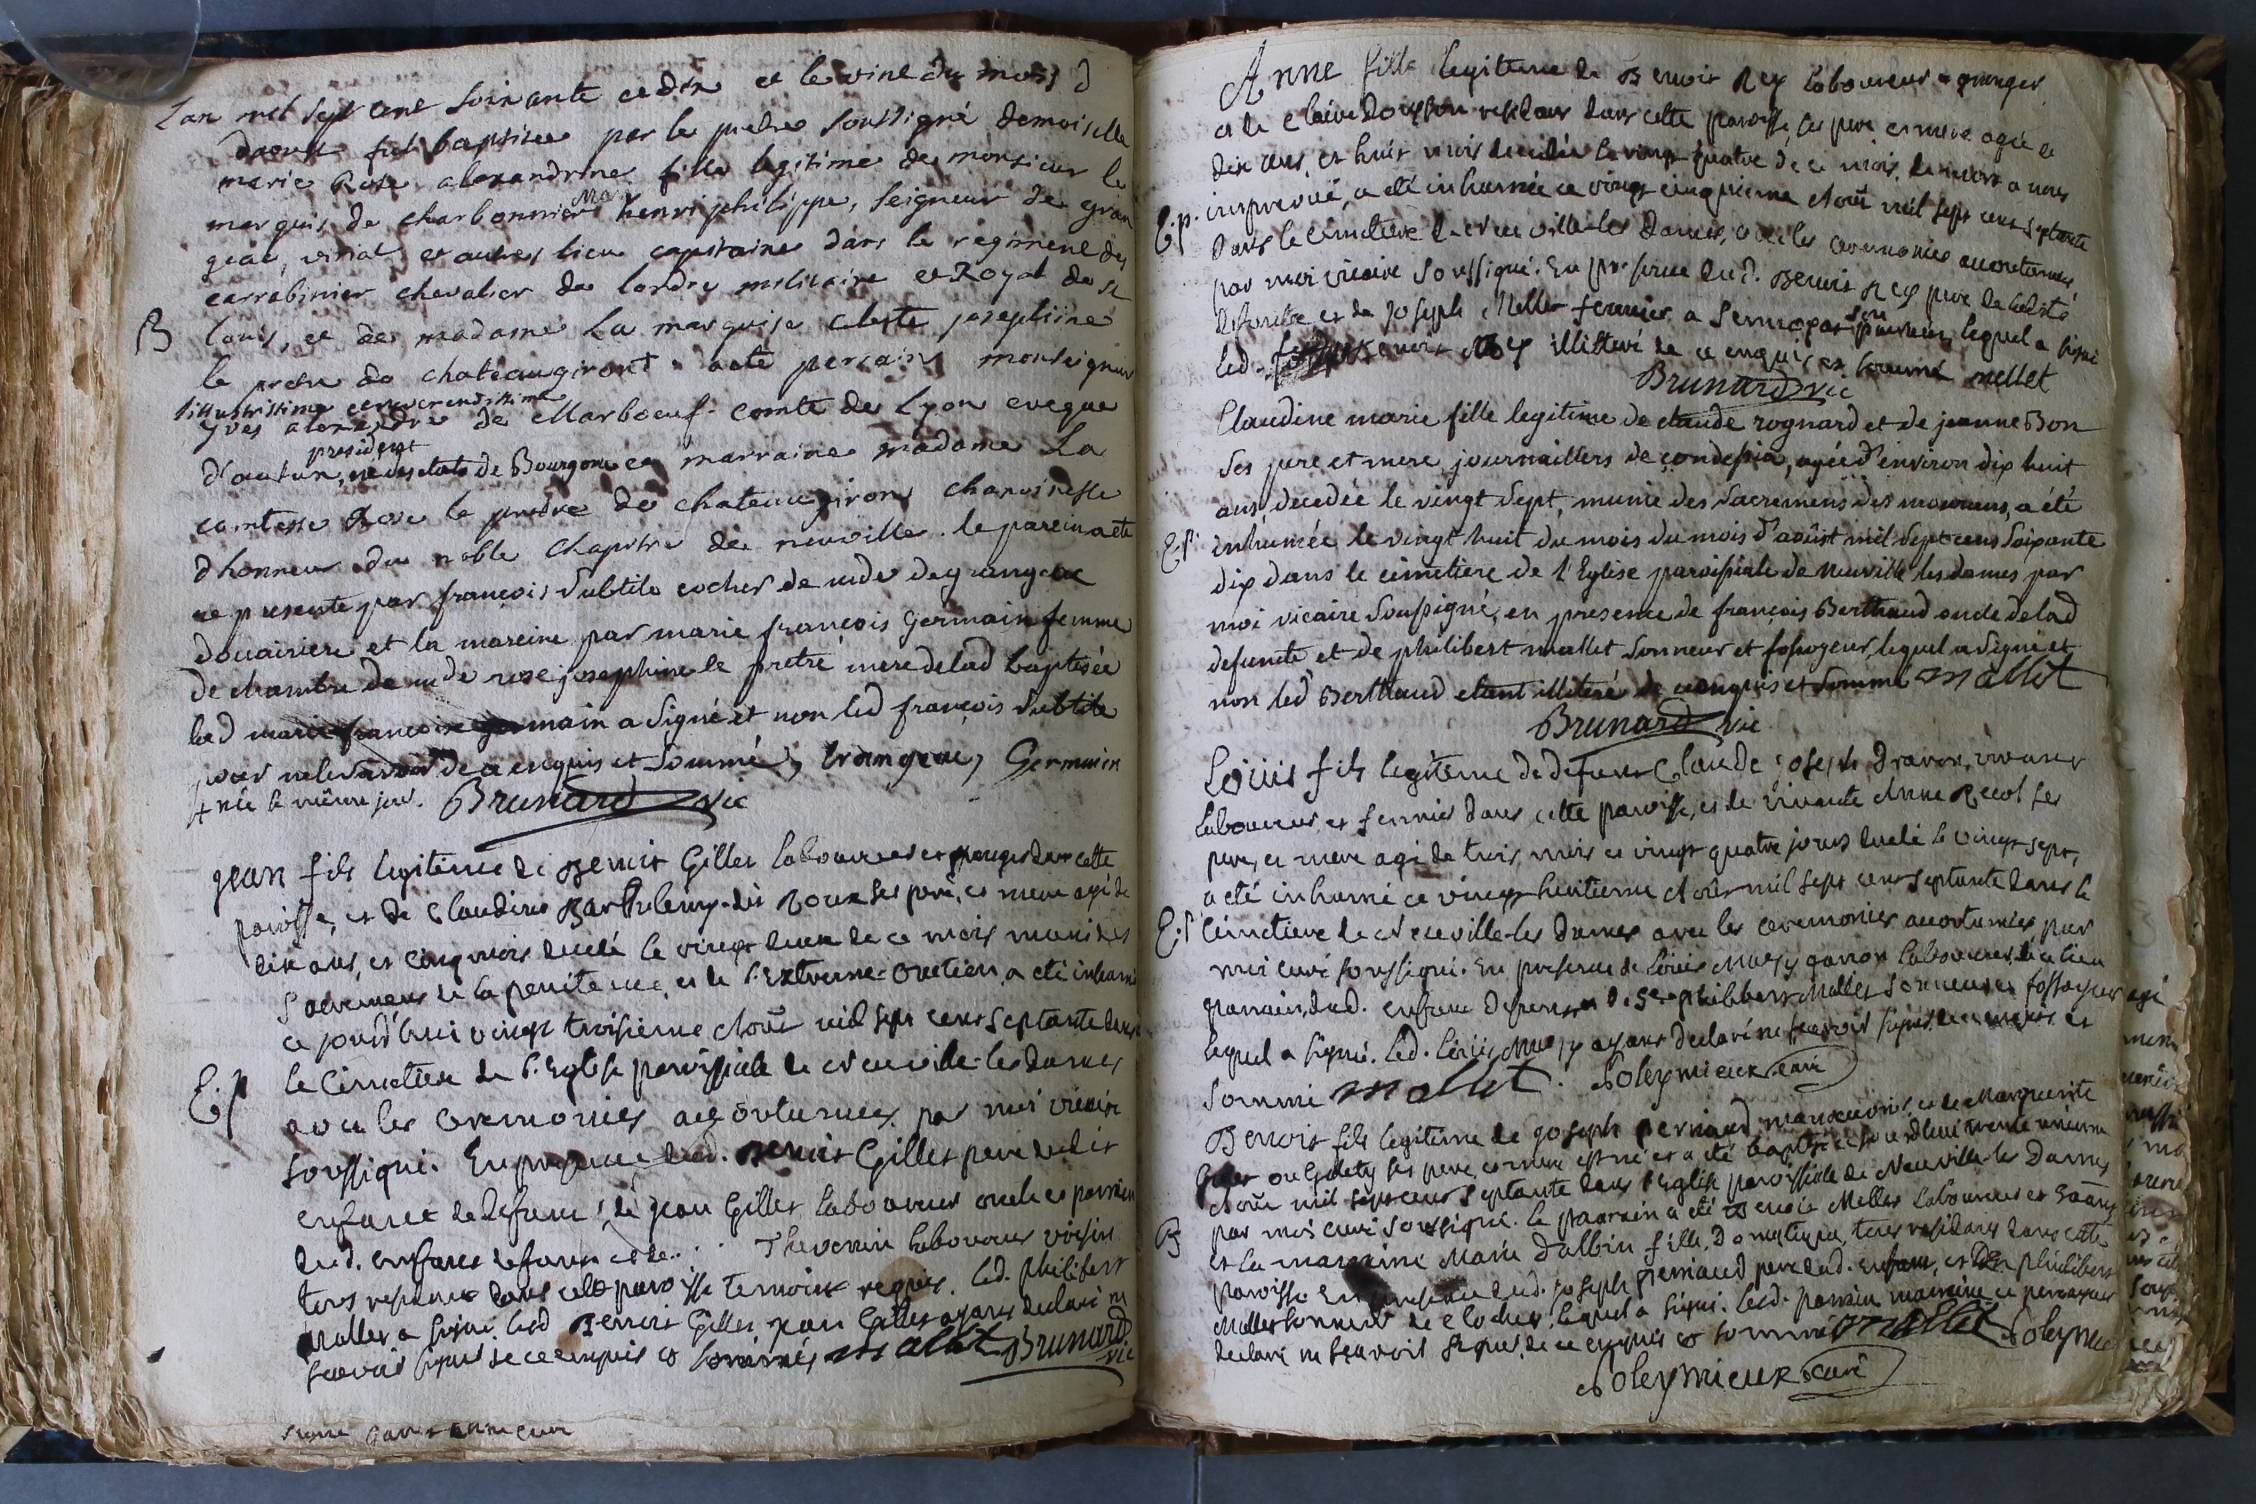 Lan mil sept cent soixante et dix et le vint du mois d
daoust fut baptisee par le pretre soussigné demoiselle
marie Rose alexandrine fille legitime de monsieur le
marquis de charbonnier henri philippe, seigneur de gran
geac, virial et autres lieu capitaine dans le regiment des
carrabinier chevalier de lordre militaire et Royal de st
B
louis, et de madame la marquise celeste josephine
le pretre de chateaugiront a eté percain monseigneur
lillustrissime et reverendissime
yves alexandre de Marboeuf comte de Lyon eveque
president
d'autun, des etats de Bourgone et marraine madame La
comtesse Rose le pretre de chateaugirons chanoinesse
dhonneur du noble chapitre de neuville. le parein a eté
represente par françois Subtile cocher de mde de grangeac
douairiere et la mareine par marie françois Germain femme
de chambre de mde rose josephine le pretre mere de lad baptisée
lad marie francoise germain a signé et non led françois Subtile
pour ne le savoir de ce enquis et sommé, Grangeac, Germain
+ née le même jour. Brunard vic
jean fils legitime de Benoit Gillet laboureur et granger dans cette
paroisse, et de Claudine Barthelemy dit Roux ses pere, et mere agé de
dix ans, et cinq mois decedé le vingt deux de ce mois muni des
sacremens de la penitence, et de l'Extreme-Onction, a eté inhumé
ce jourd'hui vingt troisieme Août mil sept cent septante dans
E.p
le Cimetiere de l'Eglise paroissiale de Neuville-les dames
avec les ceremonies accoutumées par moi vicaire
soussigné. En presence dud. Benoit Gillet pere dudit
enfant defunt, de jean Gillet laboureur oncle et parrain
dud. enfant defunt et de... Thevenin laboureur voisin
tous residans dans cette paroisse temoins requis. led. philibert
Mallet a signé led Benoit Gillet jean Gillet ayans declaré ne
scavoir signer de ce enquis et sommés mallet Brunard
vic
Anne fille legitime de Benoit Rey laboureur et granger
et de Claire Doussou residans dans cette paroisse ses pere et mere agée de
dix ans, et huit mois decedée le vingt quatre de ce mois, de mort a nous
E.p.
imprevüe, a eté inhumée ce vingt cinquieme Août mil sept cent septante
dans le cimetiere de Neuville-les Dames, avec les ceremonies accoutumées
par moi vicaire soussigné. En presence dud. Benoit Rey pere de ladite
son
defunte et de Joseph Mellet fermier a parrein, lequel a signé
led. Benoit Rey illitteré de ce enquis et sommé mellet
Brunard vic
Claudine marie fille legitime de claude rognard et de jeanne Bon
ses pere et mere journailliers de condessia, agée d'environ dix huit
ans, decedée le vingt sept, munie des sacremens des mourans, a été
E.p.
inhumée le vingt huit du mois du mois d'août mil sept cens soixante
dix dans le cimetiere de l'Eglise paroissiale de Neuville les dames par
moi vicaire soussigné, en presence de françois Berthaud oncle de lad
defuncte, et de philibert mallet sonneur et fossoyeur, lequel a signé et
non led Berthaud etant illiteré de ce enquis et sommé mallet
Brunard vic
Loüis fils legitime de defunt Claude joseph Dravon, vivant
laboureur, et fermier dans cette paroisse, et de vivante Anne Recot ses
pere, et mere agé de trois mois et vingt quatre jours decedé le vingt sept,
a eté inhumé ce vingt huitieme Août mil sept cent septante dans le
E.p
Cimetiere de Neuville-les Dames avec les ceremonies accoutumées par
moi curé soussigné. En presence de Loüis garçon laboureur de ce lieu
parrain dud. enfant defunt et de Sr. philibert Mallet sonneur et fossoyeur
lequel a signé. led. Loüis ayant declaré ne scavoir signer de ce enquis et
sommé mallet. Soleymieux curé
Benoit fils legitime de joseph pernaud manoeuvre, et de Marguerite
ou Goletty ses pere, et mere est né et a été baptisé ce jourd'hui trente unieme
Août mil sept cent septante dans l'Eglise paroissiale de Neuville-les Dames
par moi curé soussigné. le parrain a été Benoit Mellet laboureur et
B
et la marraine Marie Dalbin fille, Domestique, tous residans dans cette
paroisse. En presence dud. joseph pernaud pere dud. enfant, et de philibert
Mallet sonneur de cloches, lequel a signé. lesd. parrain marraine et pere ayant
declaré ne scavoir signer, de ce enquis et sommé mallet
Soleymieux curé